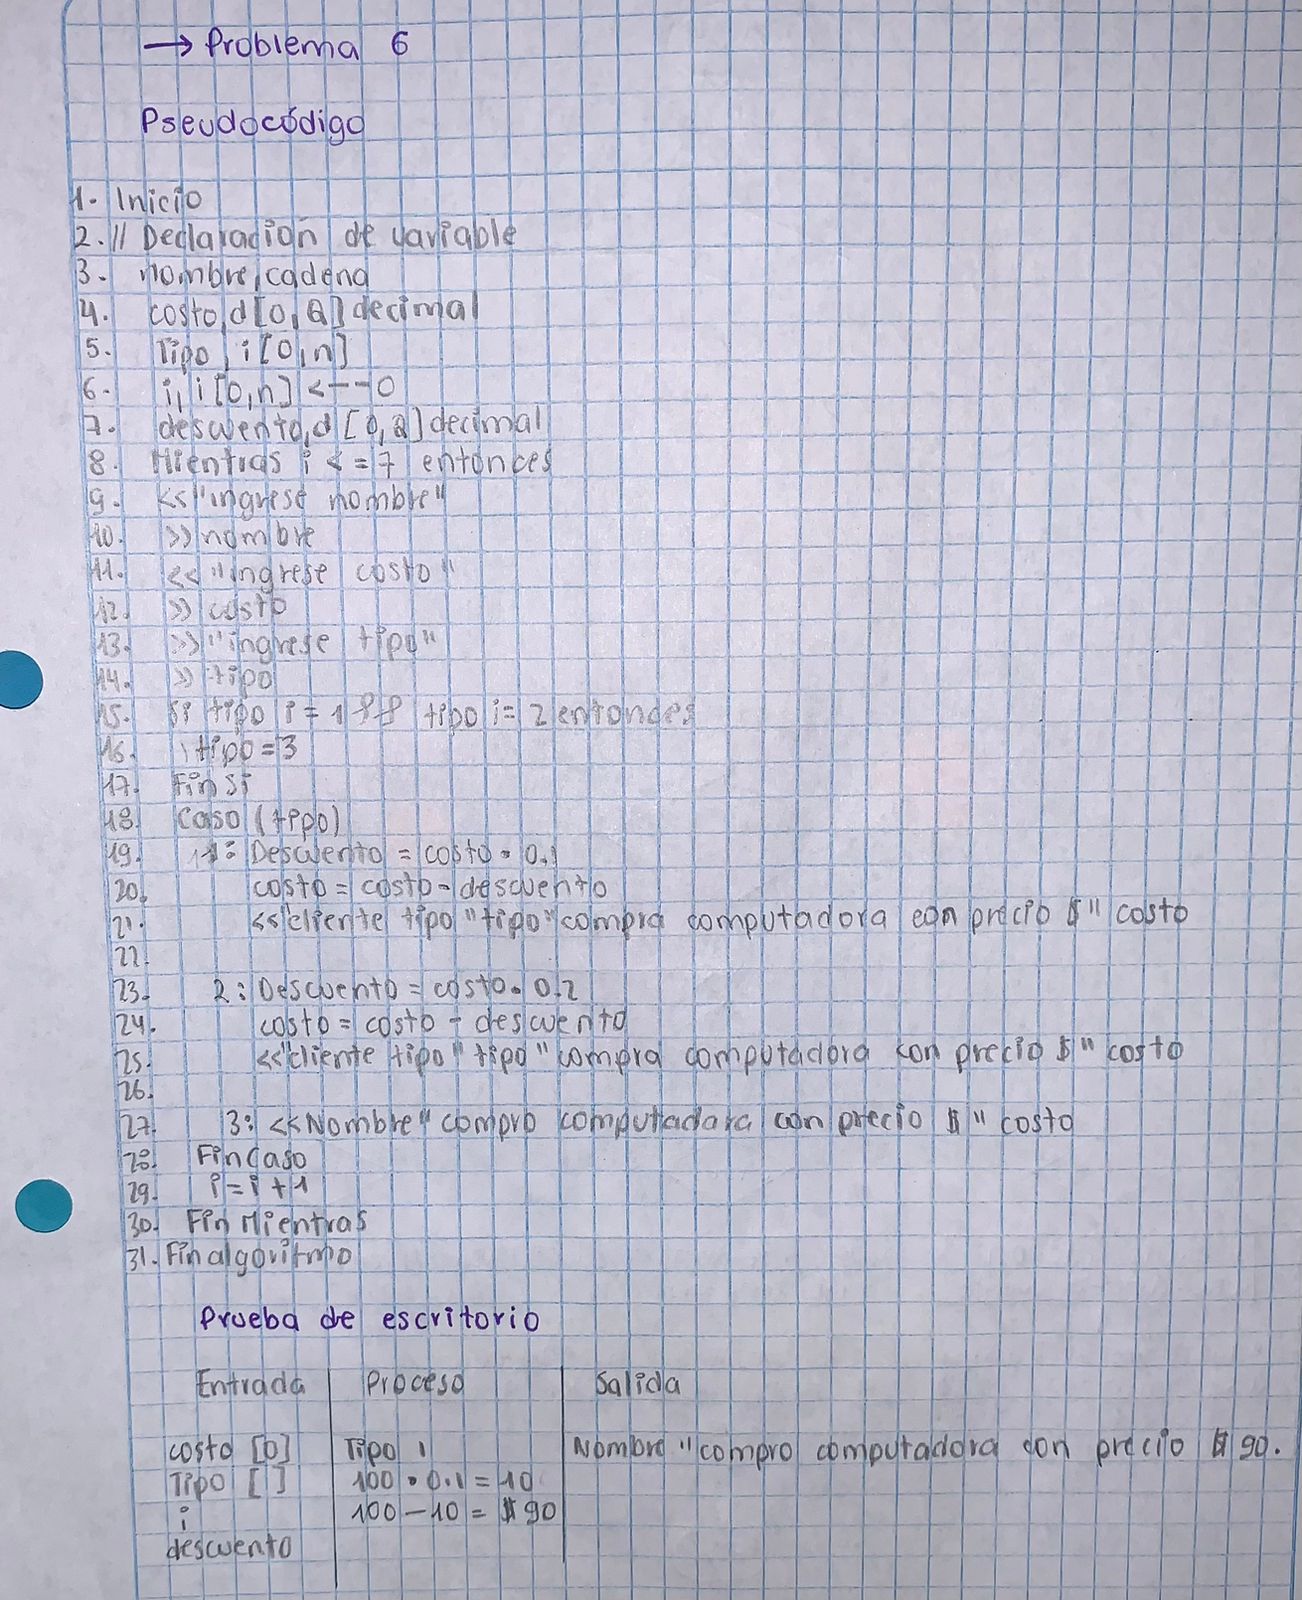 → Problema 6
Pseudocódigo
1. Inicio
2. // Declaración de variable
3. nombre, cadena
4. costo, d [0, Q] decimal
5. Tipo, i [0, n]
6. i, i [0, n] <--0
7. descuento, d [0, Q] decimal
8. Mientras i <= 7 entonces
9. << "ingrese nombre"
10. >> nombre
11. << "ingrese costo"
12. >> costo
13. >> "ingrese tipo"
14. >> tipo
15. Si tipo i = 1 && tipo i = 2 entonces
16. tipo = 3
17. Fin si
18. Caso (tipo)
19. 1: Descuento = costo • 0.1
20. costo = costo - descuento
21. << "cliente tipo "tipo" compra computadora con precio $" costo
22.
23. 2: Descuento = costo • 0.2
24. costo = costo - descuento
25. << "cliente tipo" tipo "compra computadora con precio $" costo
26.
27. 3: << Nombre "compro computadora con precio $" costo
28. Fin Caso
29. i = i + 1
30. Fin Mientras
31. Fin algoritmo
Prueba de escritorio
Entrada Proceso Salida
costo [0] Tipo 1 Nombre "compro computadora con precio $ 90.
Tipo [ ] 100 • 0.1 = 10
i 100 - 10 = $ 90
descuento